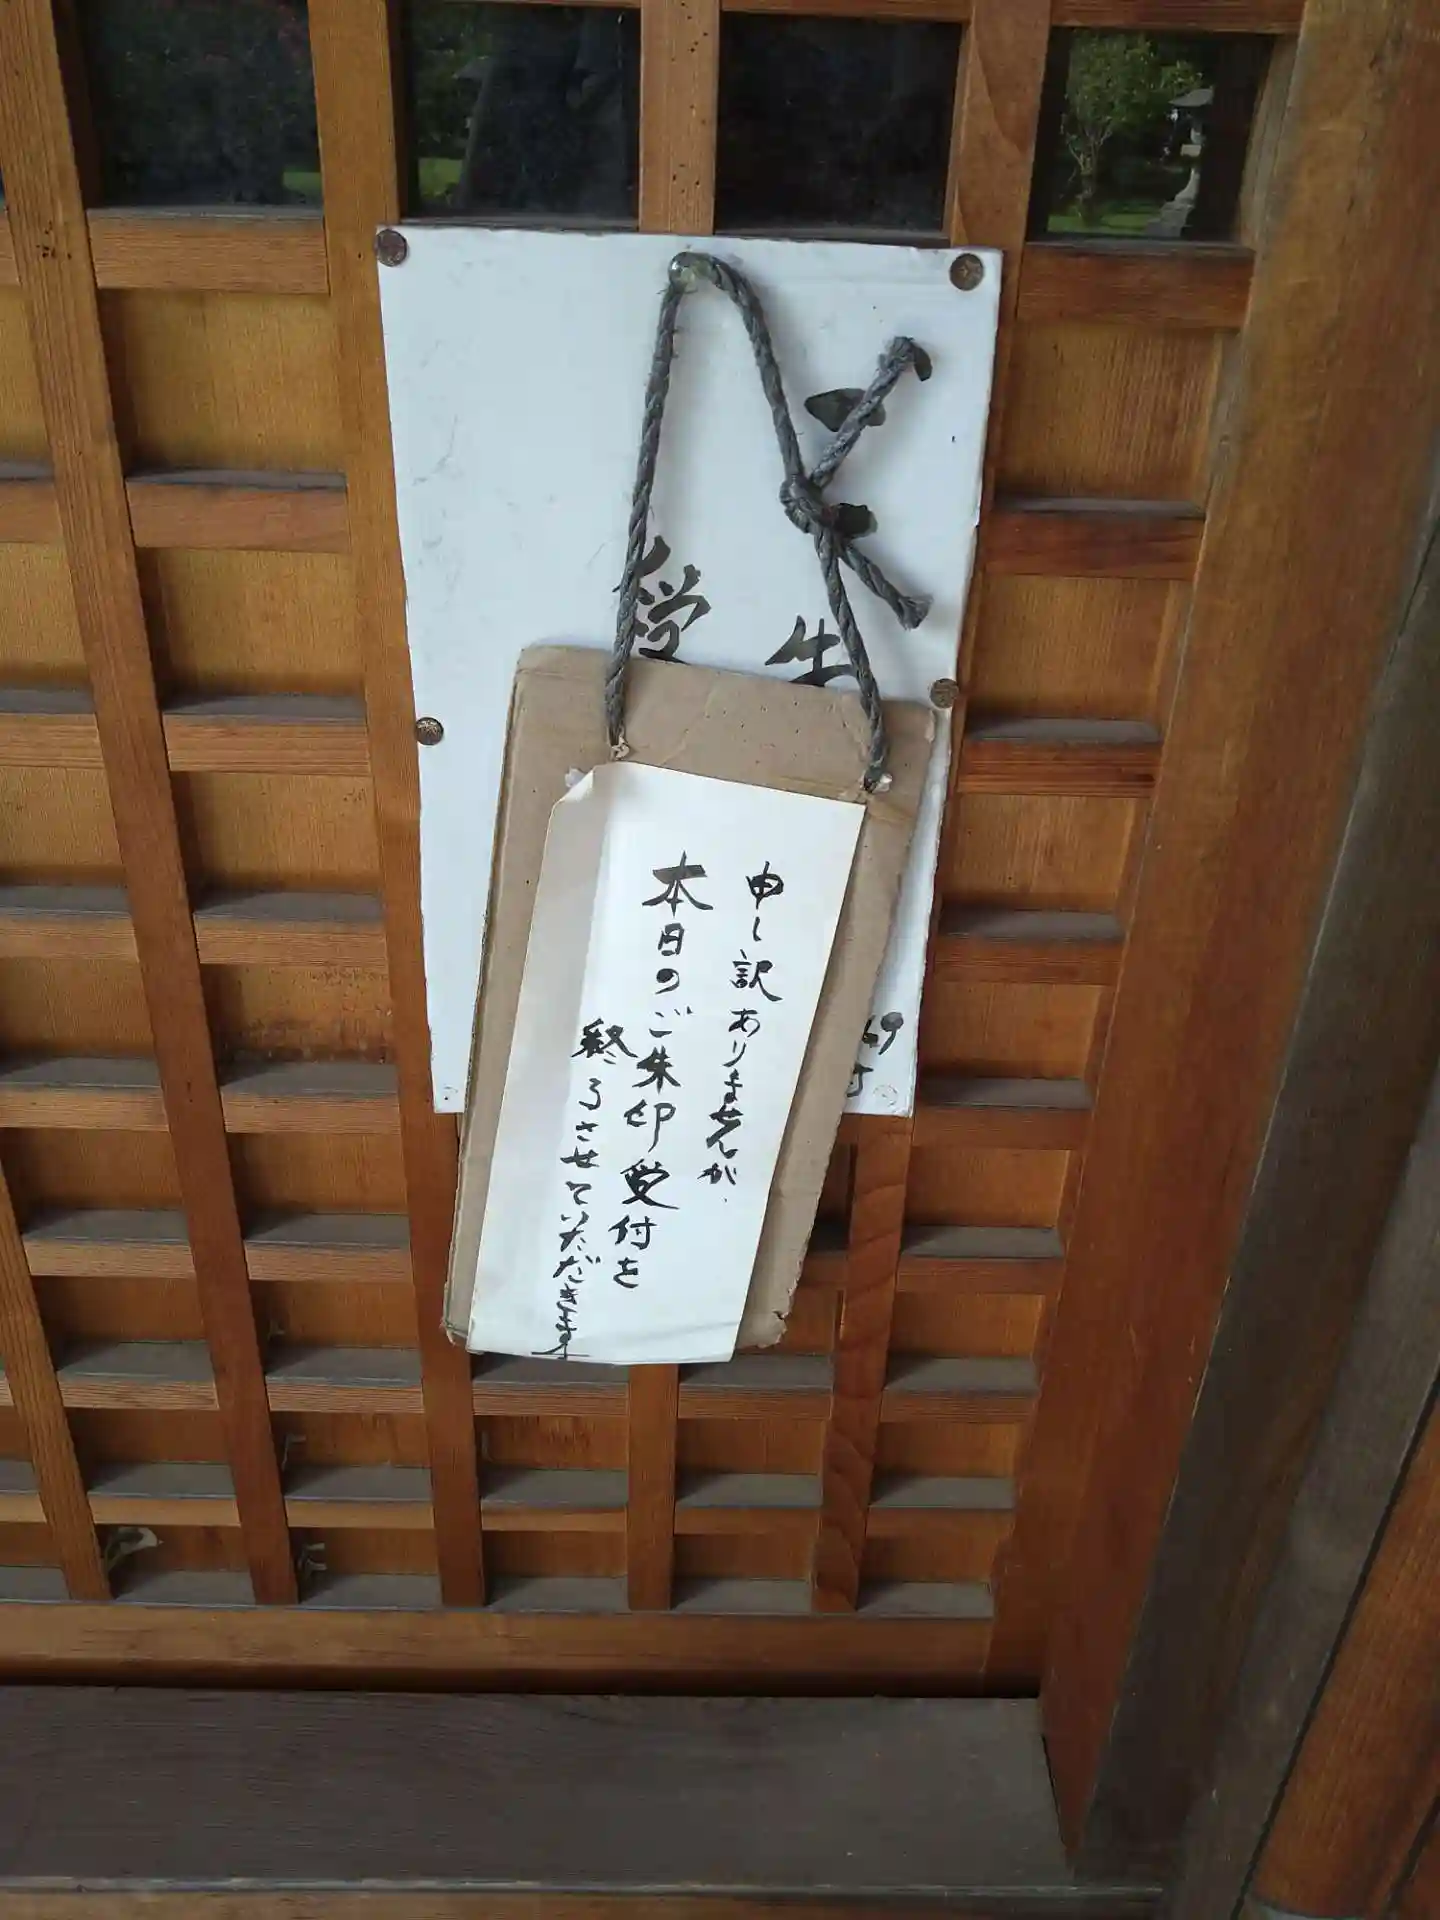 申し訳ありませんが、
本日のご朱印受付を
終るさせていただきます
授